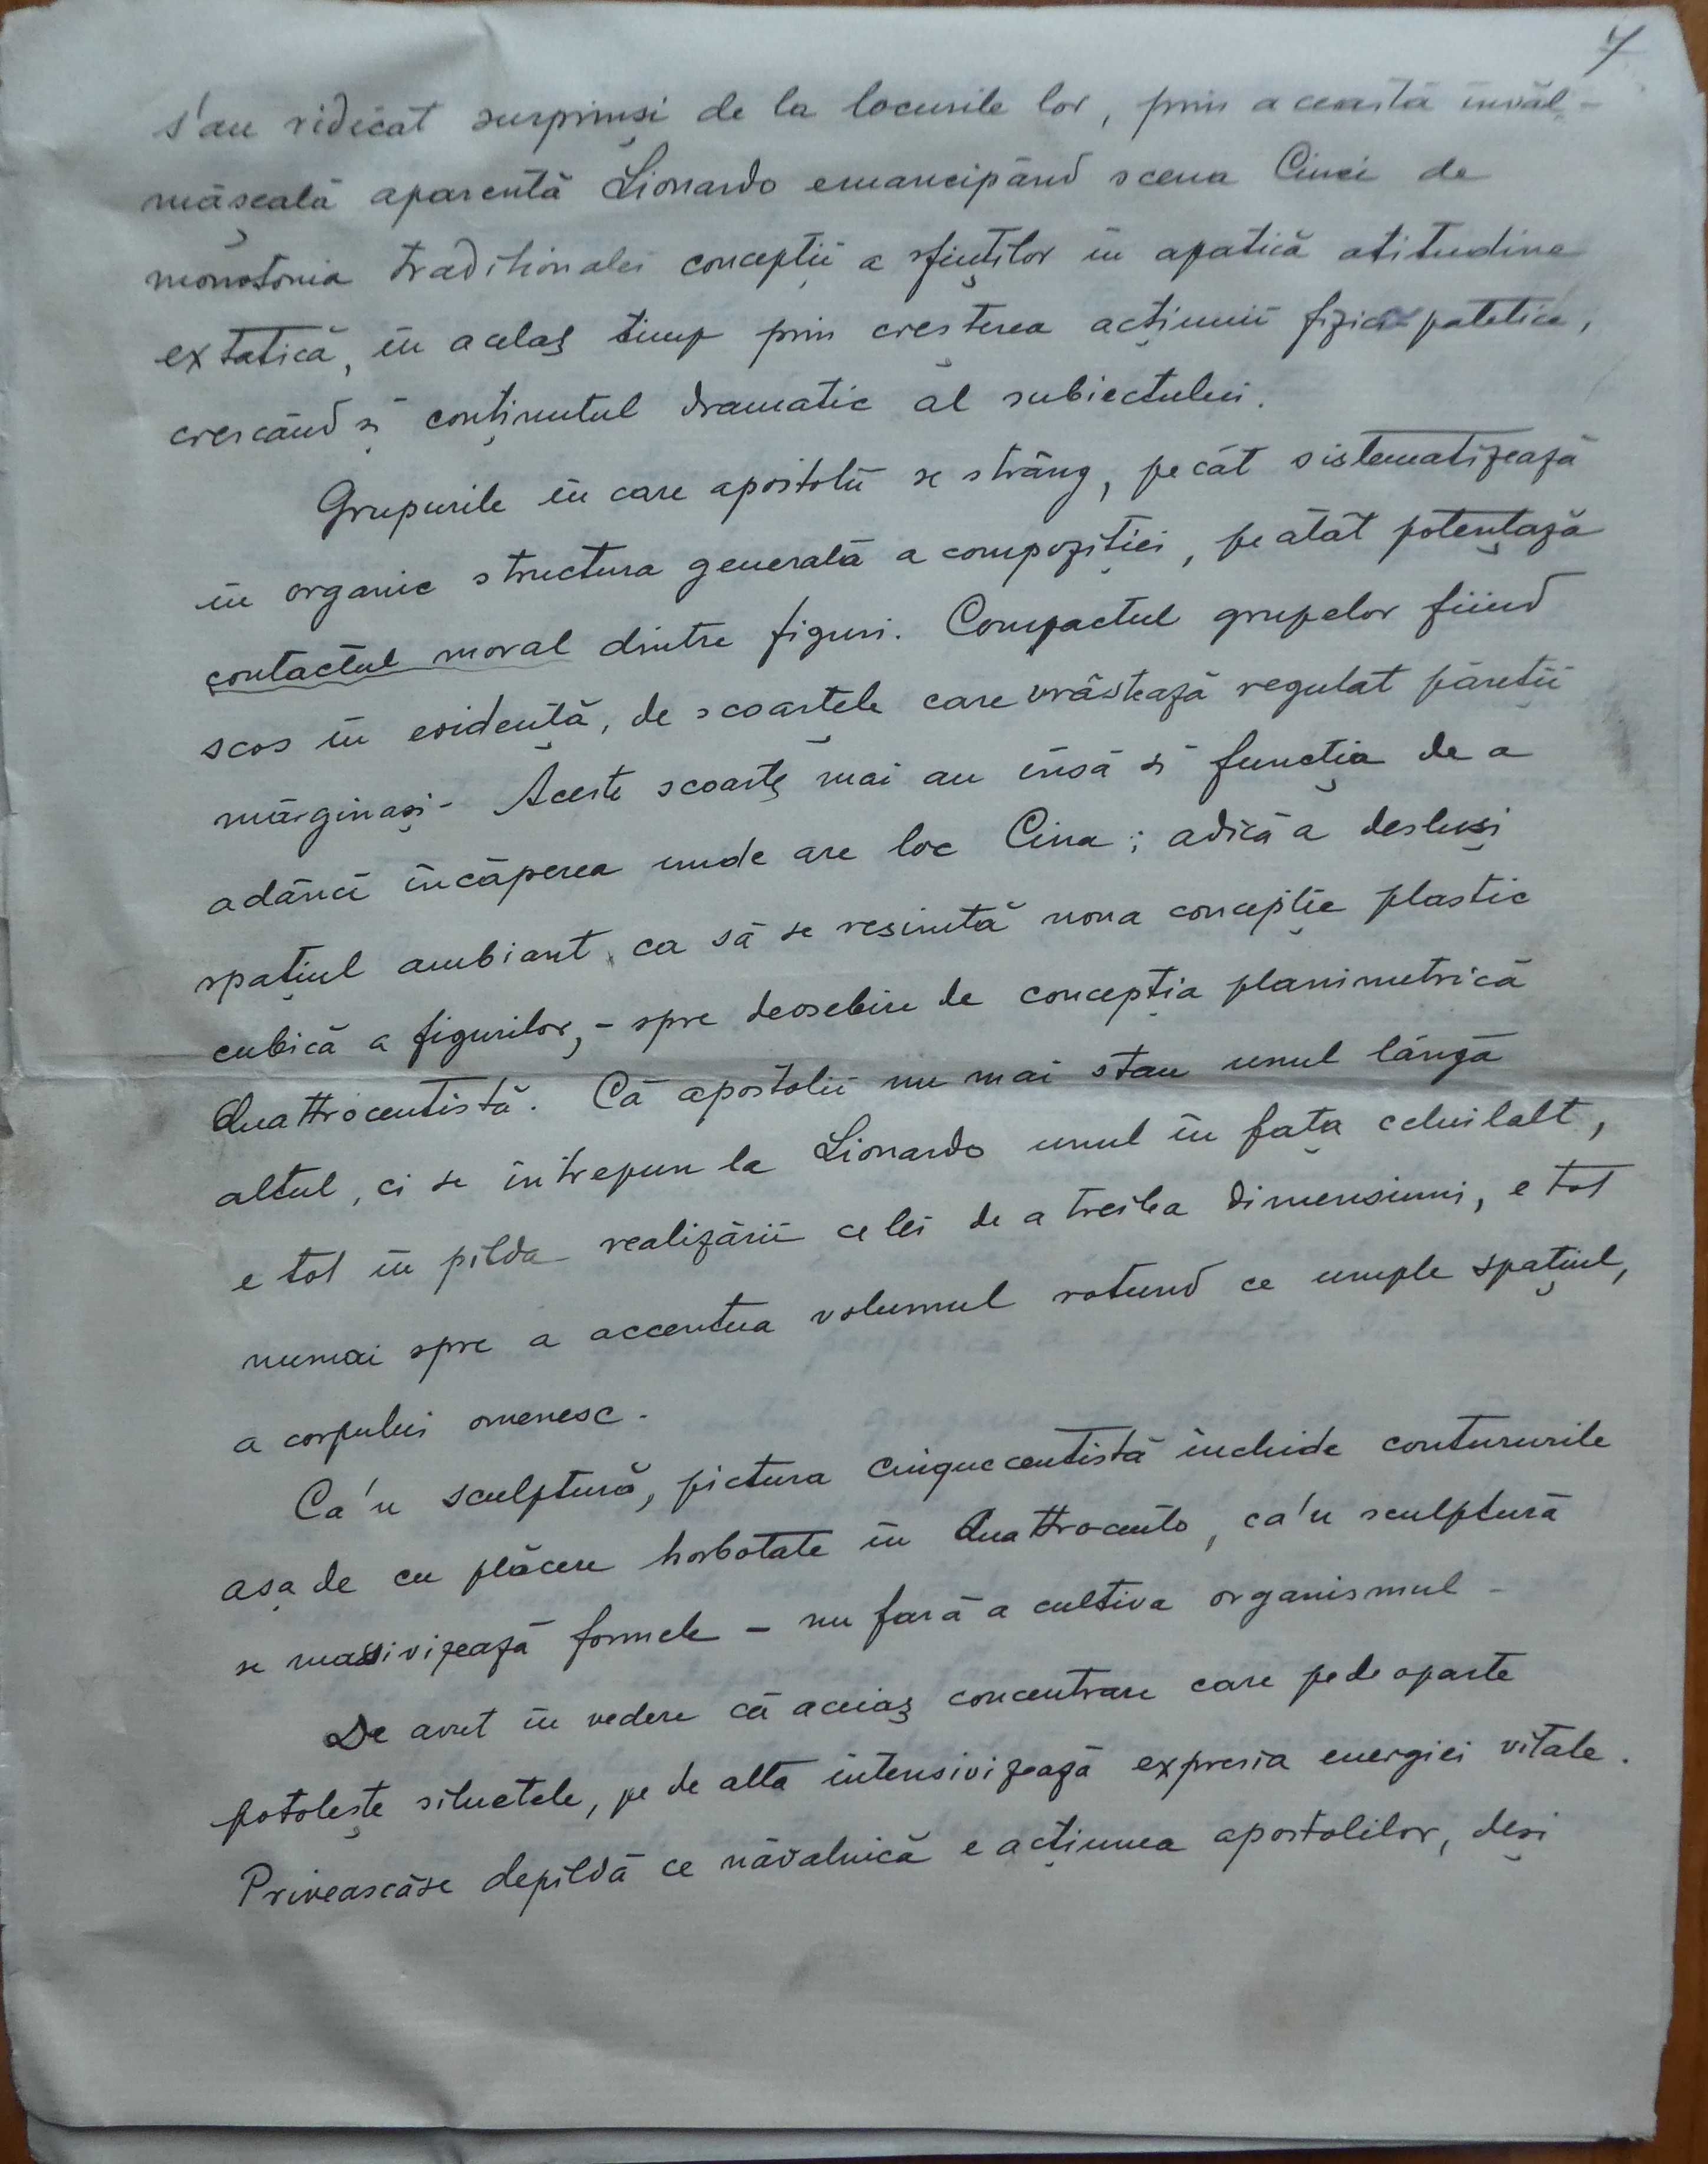 7
s'au ridicat surprinși de la locurile lor, prin această învăl-
mășeală aparentă Lionardo emancipând scena Cinei de
monotonia tradiționalei concepții a sfinților în apatică atitudine
extatică, în acelaș timp prin creșterea acțiunii fizice-patetice,
crescând și conținutul dramatic al subiectului.
Grupurile în care apostolii se strâng, pe cât sistematizează
în organic structura generală a compoziției, pe atât potențază
contactul moral dintre figuri. Compactul grupelor fiind
scos în evidență, de scoarțele care vrâstează regulat păreții
mărginași. Aceste scoarțe mai au însă și funcția de a
adânci încăperea unde are loc Cina; adică a desluși
spațiul ambiant, ca să se resimtă noua concepție plastic
cubică a figurilor, - spre deosebire de concepția planimetrică
Quattrocentistă. Că apostolii nu mai stau unul lângă
altul, ci se întrepun la Lionardo unul în fața celuilalt,
e tot în pilda realizării celei de a treilea dimensiuni, e tot
numai spre a accentua volumul rotund ce umple spațiul,
a corpului omenesc.
Ca'n sculptură, pictura cinquecentistă închide contururile
așa de cu plăcere horbotate în Quattrocento, ca'n sculptură
se massivizează formele - nu fară a cultiva organismul -
De avut în vedere că aceiaș concentrare care pe de oparte
potolește siluetele, pe de alta intensivizează expresia energiei vitale.
Priveascăse depildă ce năvalnică e acțiunea apostolilor, deși